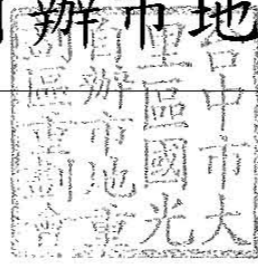 辦市地
台中市大
里區國光
自辦市地重
劃區重劃會